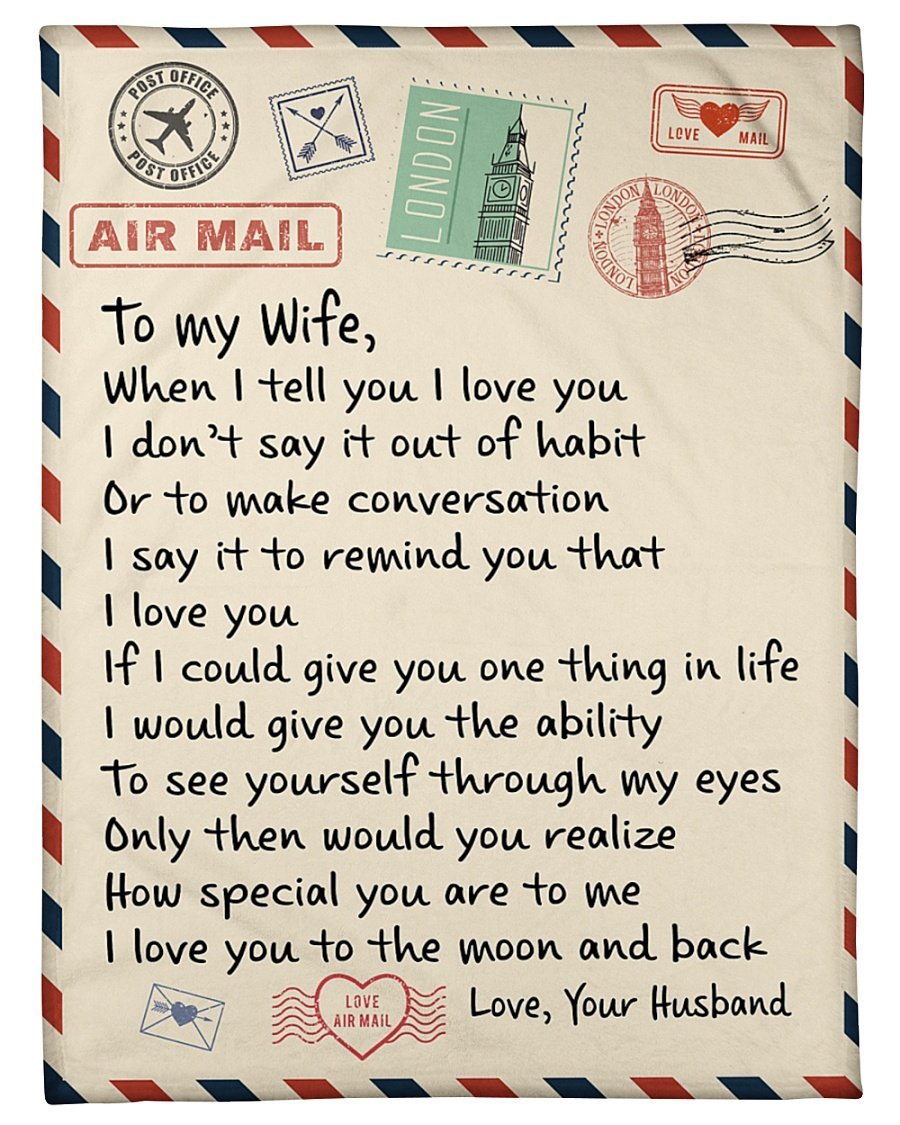 POST OFFICE
POST OFFICE
LONDON
LOVE MAIL
AIR MAIL
LONDON LONDON
LONDON LONDON
To my Wife,
When I tell you I love you
I don't say it out of habit
Or to make conversation
I say it to remind you that
I love you
If I could give you one thing in life
I would give you the ability
To see yourself through my eyes
Only then would you realize
How special you are to me
I love you to the moon and back
LOVE
AIR MAIL
Love, Your Husband